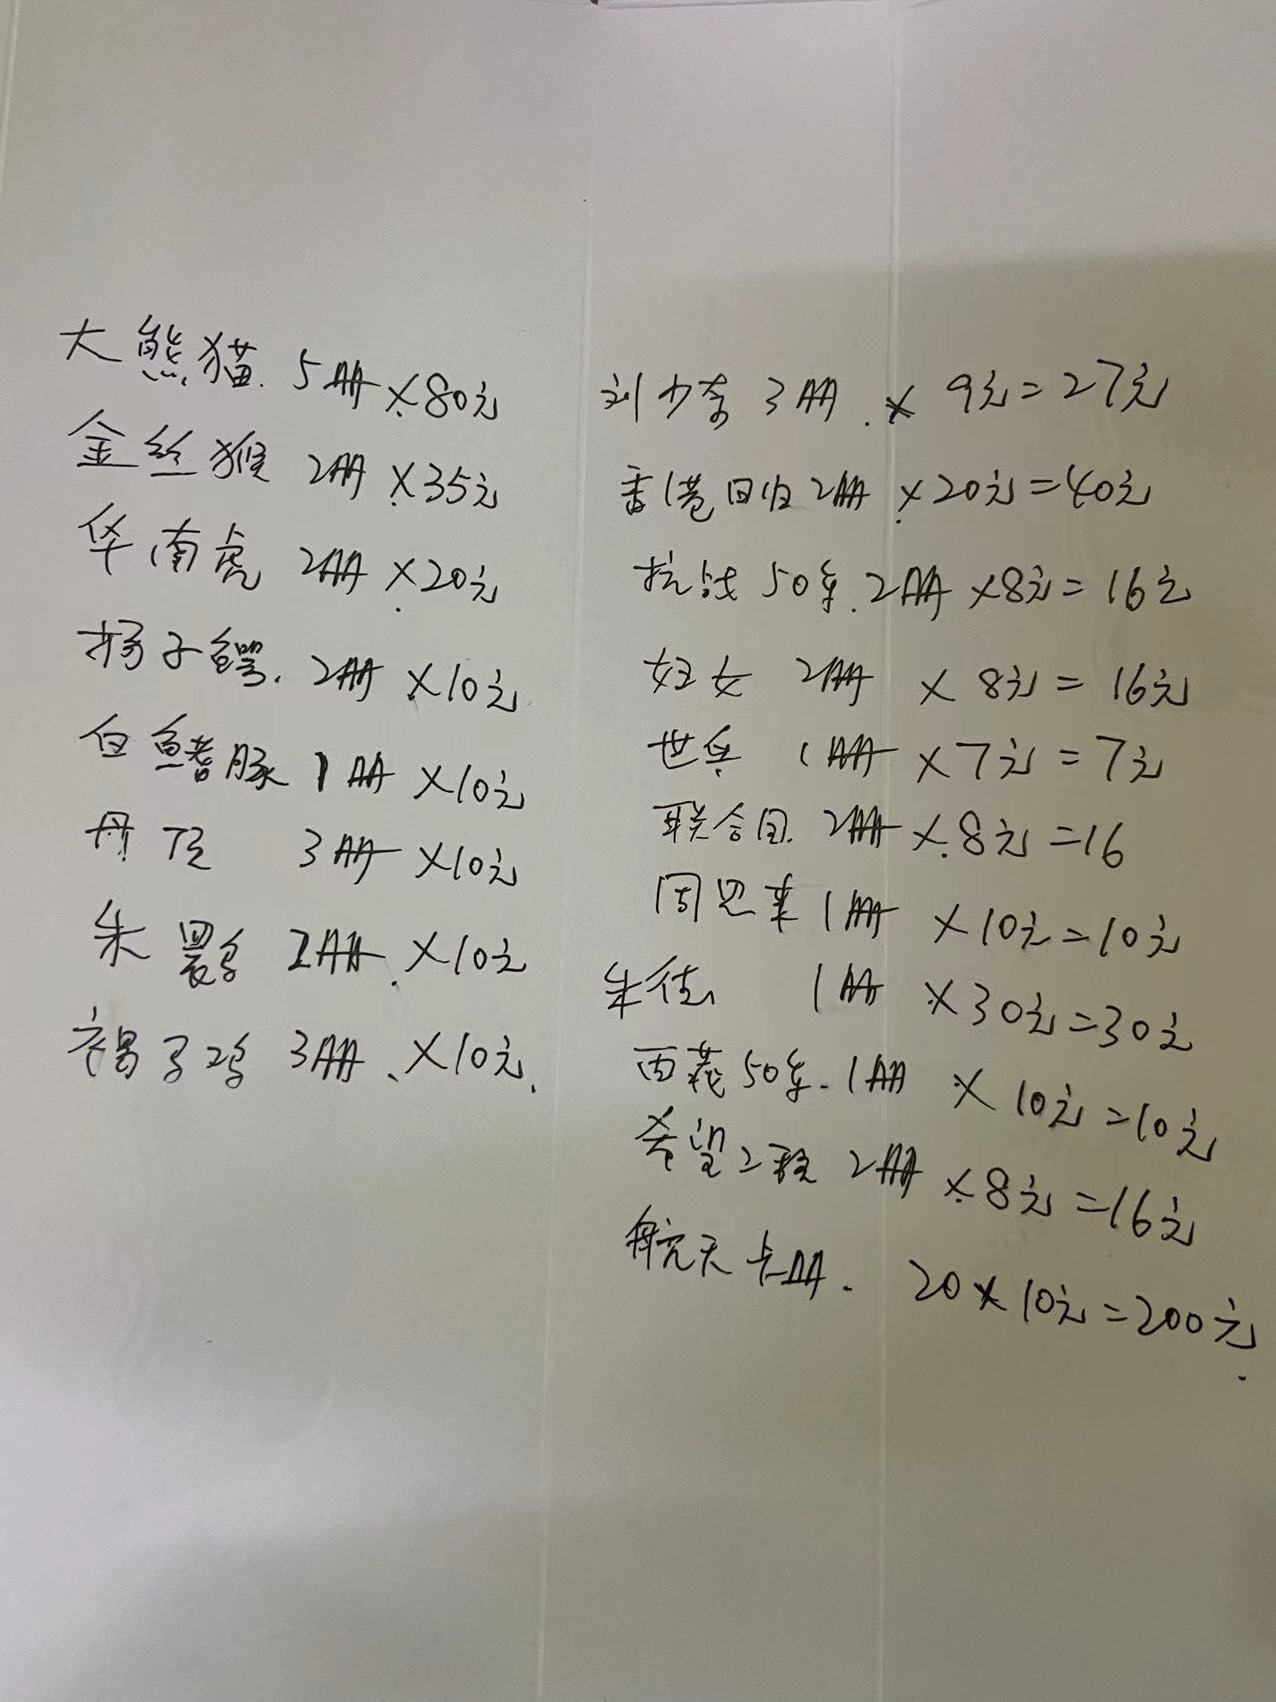 大熊猫. 5册×80元
金丝猴 2册×35元
华南虎 2册×20元
扬子鳄. 2册×10元
白鱀豚 1册×10元
丹顶 3册×10元
朱鹮 2册.×10元
褐马鸡 3册.×10元.
刘少奇 3册.× 9元=27元
香港回归 2册×20元=40元
抗战50年.2册×8元=16元
妇女 2册 × 8元=16元
世乒 1册×7元=7元
联合国. 2册×8元=16
周恩来 1册 ×10元=10元
朱德 1册 ×30元=30元
西藏50年.1册 × 10元=10元
希望工程 2册×8元=16元
航天卡册. 20×10元=200元.